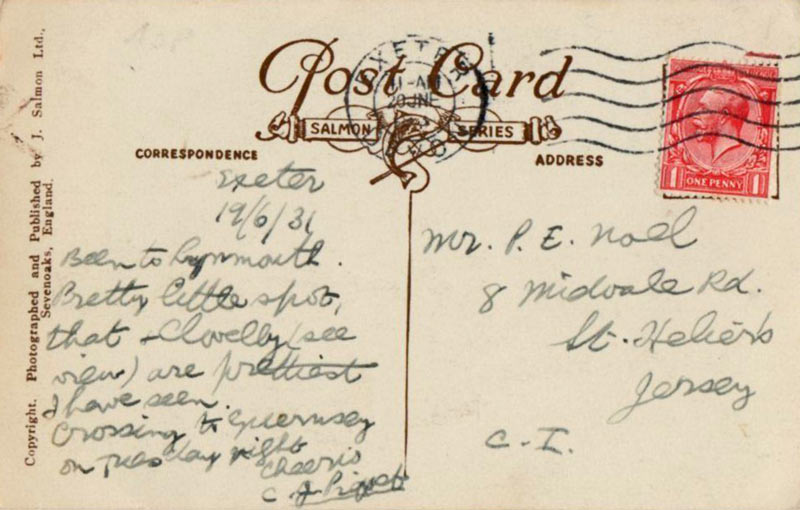 Copyright. Photographed and Published by J. Salmon Ltd.,
Sevenoaks, England.
Post Card
SALMON SERIES
CORRESPONDENCE
ADDRESS
EXETER
11-AM
20 JNE
ONE PENNY
1 1
Exeter
19/6/31
Been to Lynmouth.
Pretty little spot,
that + Clovelly (see
view) are prettiest
I have seen.
Crossing to Guernsey
on Tuesday night
Cheerio
C
Mr. P. E. Noel
8 Midvale Rd.
St. Helier's
Jersey
C.I.